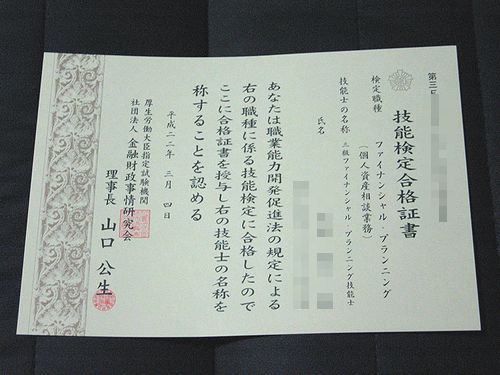 第三
技能検定合格証書
検定職種
ファイナンシャル・プランニング
(個人資産相談業務)
技能士の名称 三級ファイナンシャル・プランニング技能士
氏名
あなたは職業能力開発促進法の規定による
右の職種に係る技能検定に合格したので
ここに合格証書を授与し右の技能士の名称を
称することを認める
平成二二年 三月 四日
厚生労働大臣指定試験機関
社団法人 金融財政事情研究会
理事長 山口 公生